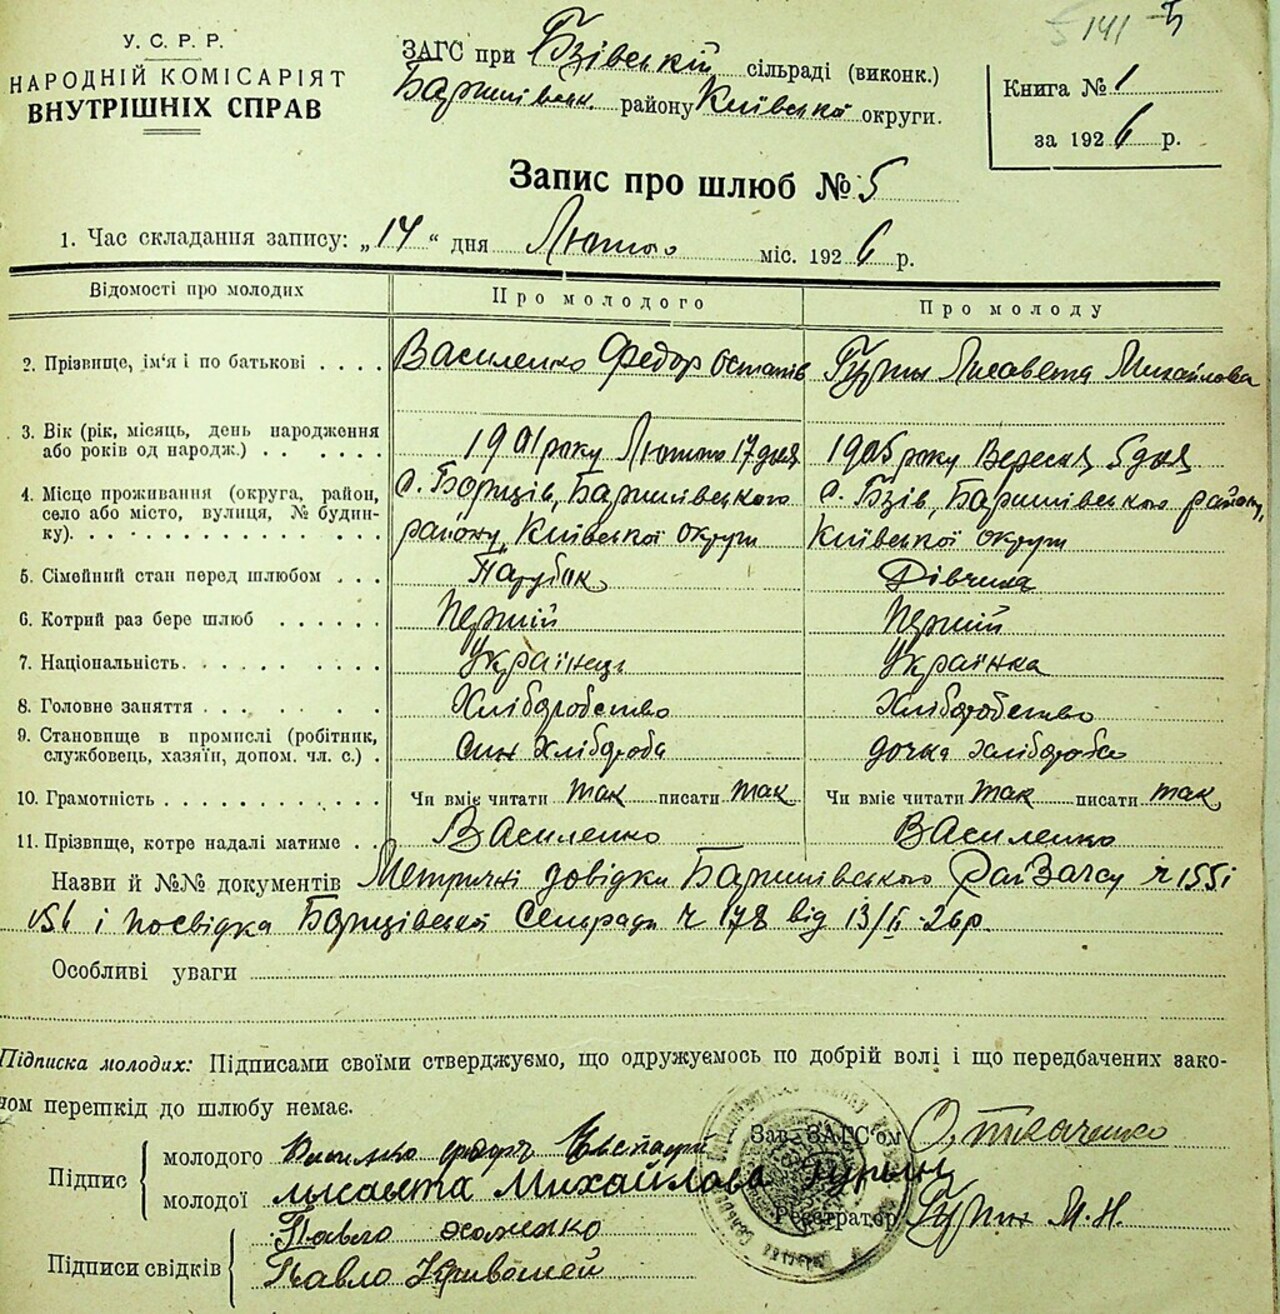 141
У. С. Р. Р.
НАРОДНІЙ КОМІСАРІЯТ
ВНУТРІШНІХ СПРАВ
ЗАГС при Бзівській сільраді (виконк.)
Баришівськ. району Київської округи.
Книга № 1
за 1926 р.
Запис про шлюб № 5
1. Час складання запису: „14“ дня Лютого міс. 1926 р.
Відомості про молодих
Про молодого
Про молоду
2. Прізвище, ім‘я і по батькові . . . .
Василенко Федор Остапів
Гурин Лисавета Михайлова
3. Вік (рік, місяць, день народження або років од народж.) . . . . . .
1901 року Лютого 17 дня
1905 року Вересня 5 дня
4. Місце проживання (округа, район, село або місто, вулиця, № будинку). . . . . . . . . . . . . . .
с. Борщів, Баришівського
району, Київської округи
с. Бзів, Баришівського району,
Київської округи
5. Сімейний стан перед шлюбом . . .
Парубок
Дівчина
6. Котрий раз бере шлюб . . . . . .
Перший
Перший
7. Національність. . . . . . . . .
Українець
Українка
8. Головне заняття . . . . . . . .
Хліборобство
Хліборобство
9. Становище в промислі (робітник, службовець, хазяїн, допом. чл. с.) .
син хлібороба
дочка хлібороба
10. Грамотність . . . . . . . . . . .
Чи вміє читати так писати так
Чи вміє читати так писати так
11. Прізвище, котре надалі матиме . .
Василенко
Василенко
Назви й №№ документів Метричні довідки Баришівського РайЗагсу ч 155 і
156 і посвідка Борщівської Сельради ч 178 від 13/II-26р.
Особливі уваги
Підписка молодих: Підписами своїми стверджуємо, що одружуємось по добрій волі і що передбачених зако-
ном перешкід до шлюбу немає.
Підпис
молодого Василько федоръ
молодої лисавета Михайлова Гурын
Підписи свідків
Павло
Павло Кривошей
Зав. ЗАГС‘ом О. ткаченко
Реєстратор Гурин М. Н.